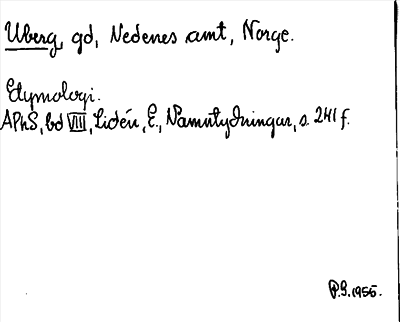 Uberg, gd, Nedenes amt, Norge.
Etymologi.
APhS, bd VIII, Lidén, E., Namntydningar, s. 241 f.
P.S. 1955.